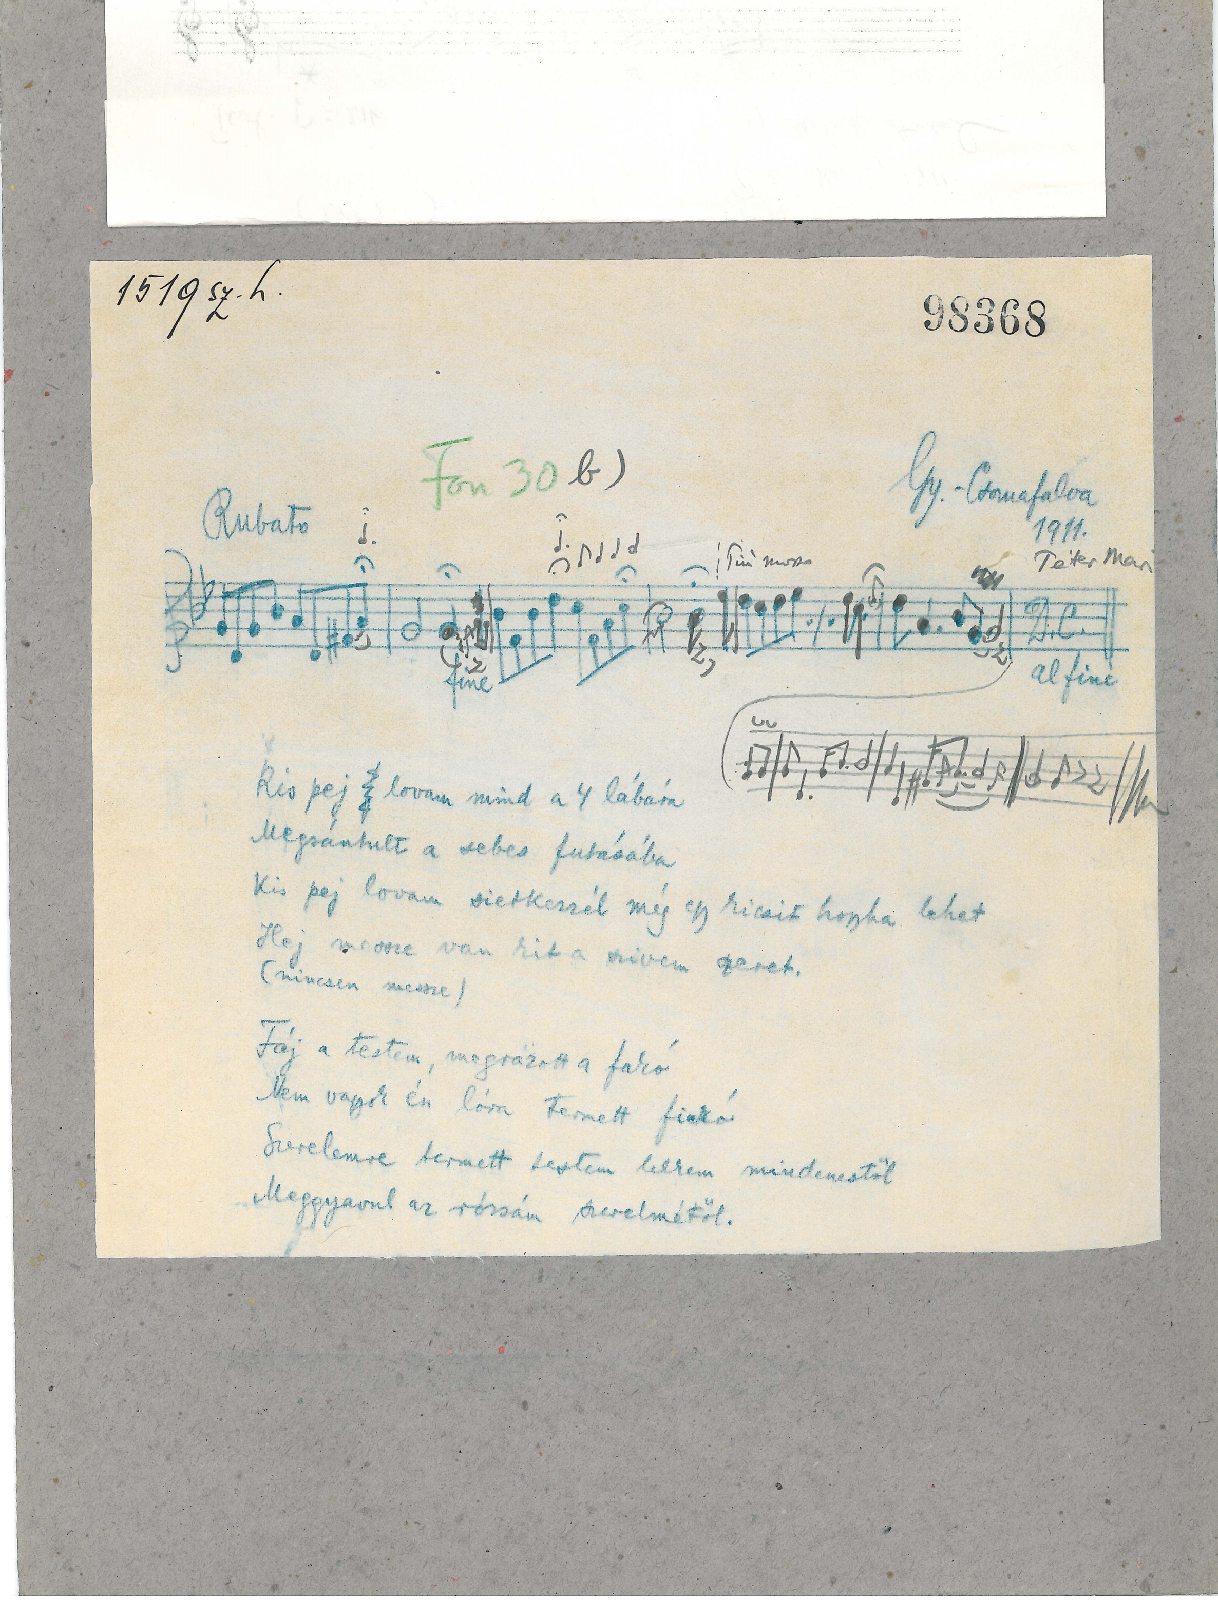 1519 sz. h.
98368
Fon 30 b)
Gy.-Csomafalva
1911.
Péter Mari
Rubato
Più mosso
fine
D.C.
al fine
Kis pej lovam mind a 4 lábára
Megsántult a sebes futásába
Kis pej lovam siess még egy kicsit hogyha lehet
Hej messze van kit a szivem szeret.
(nincsen messze)
Fáj a testem, megrázott a fakó
Nem vagyok én lóra termett fickó
Szerelemre termett testem lelkem mindenestől
Meggyavul az rózsám szerelmétől.